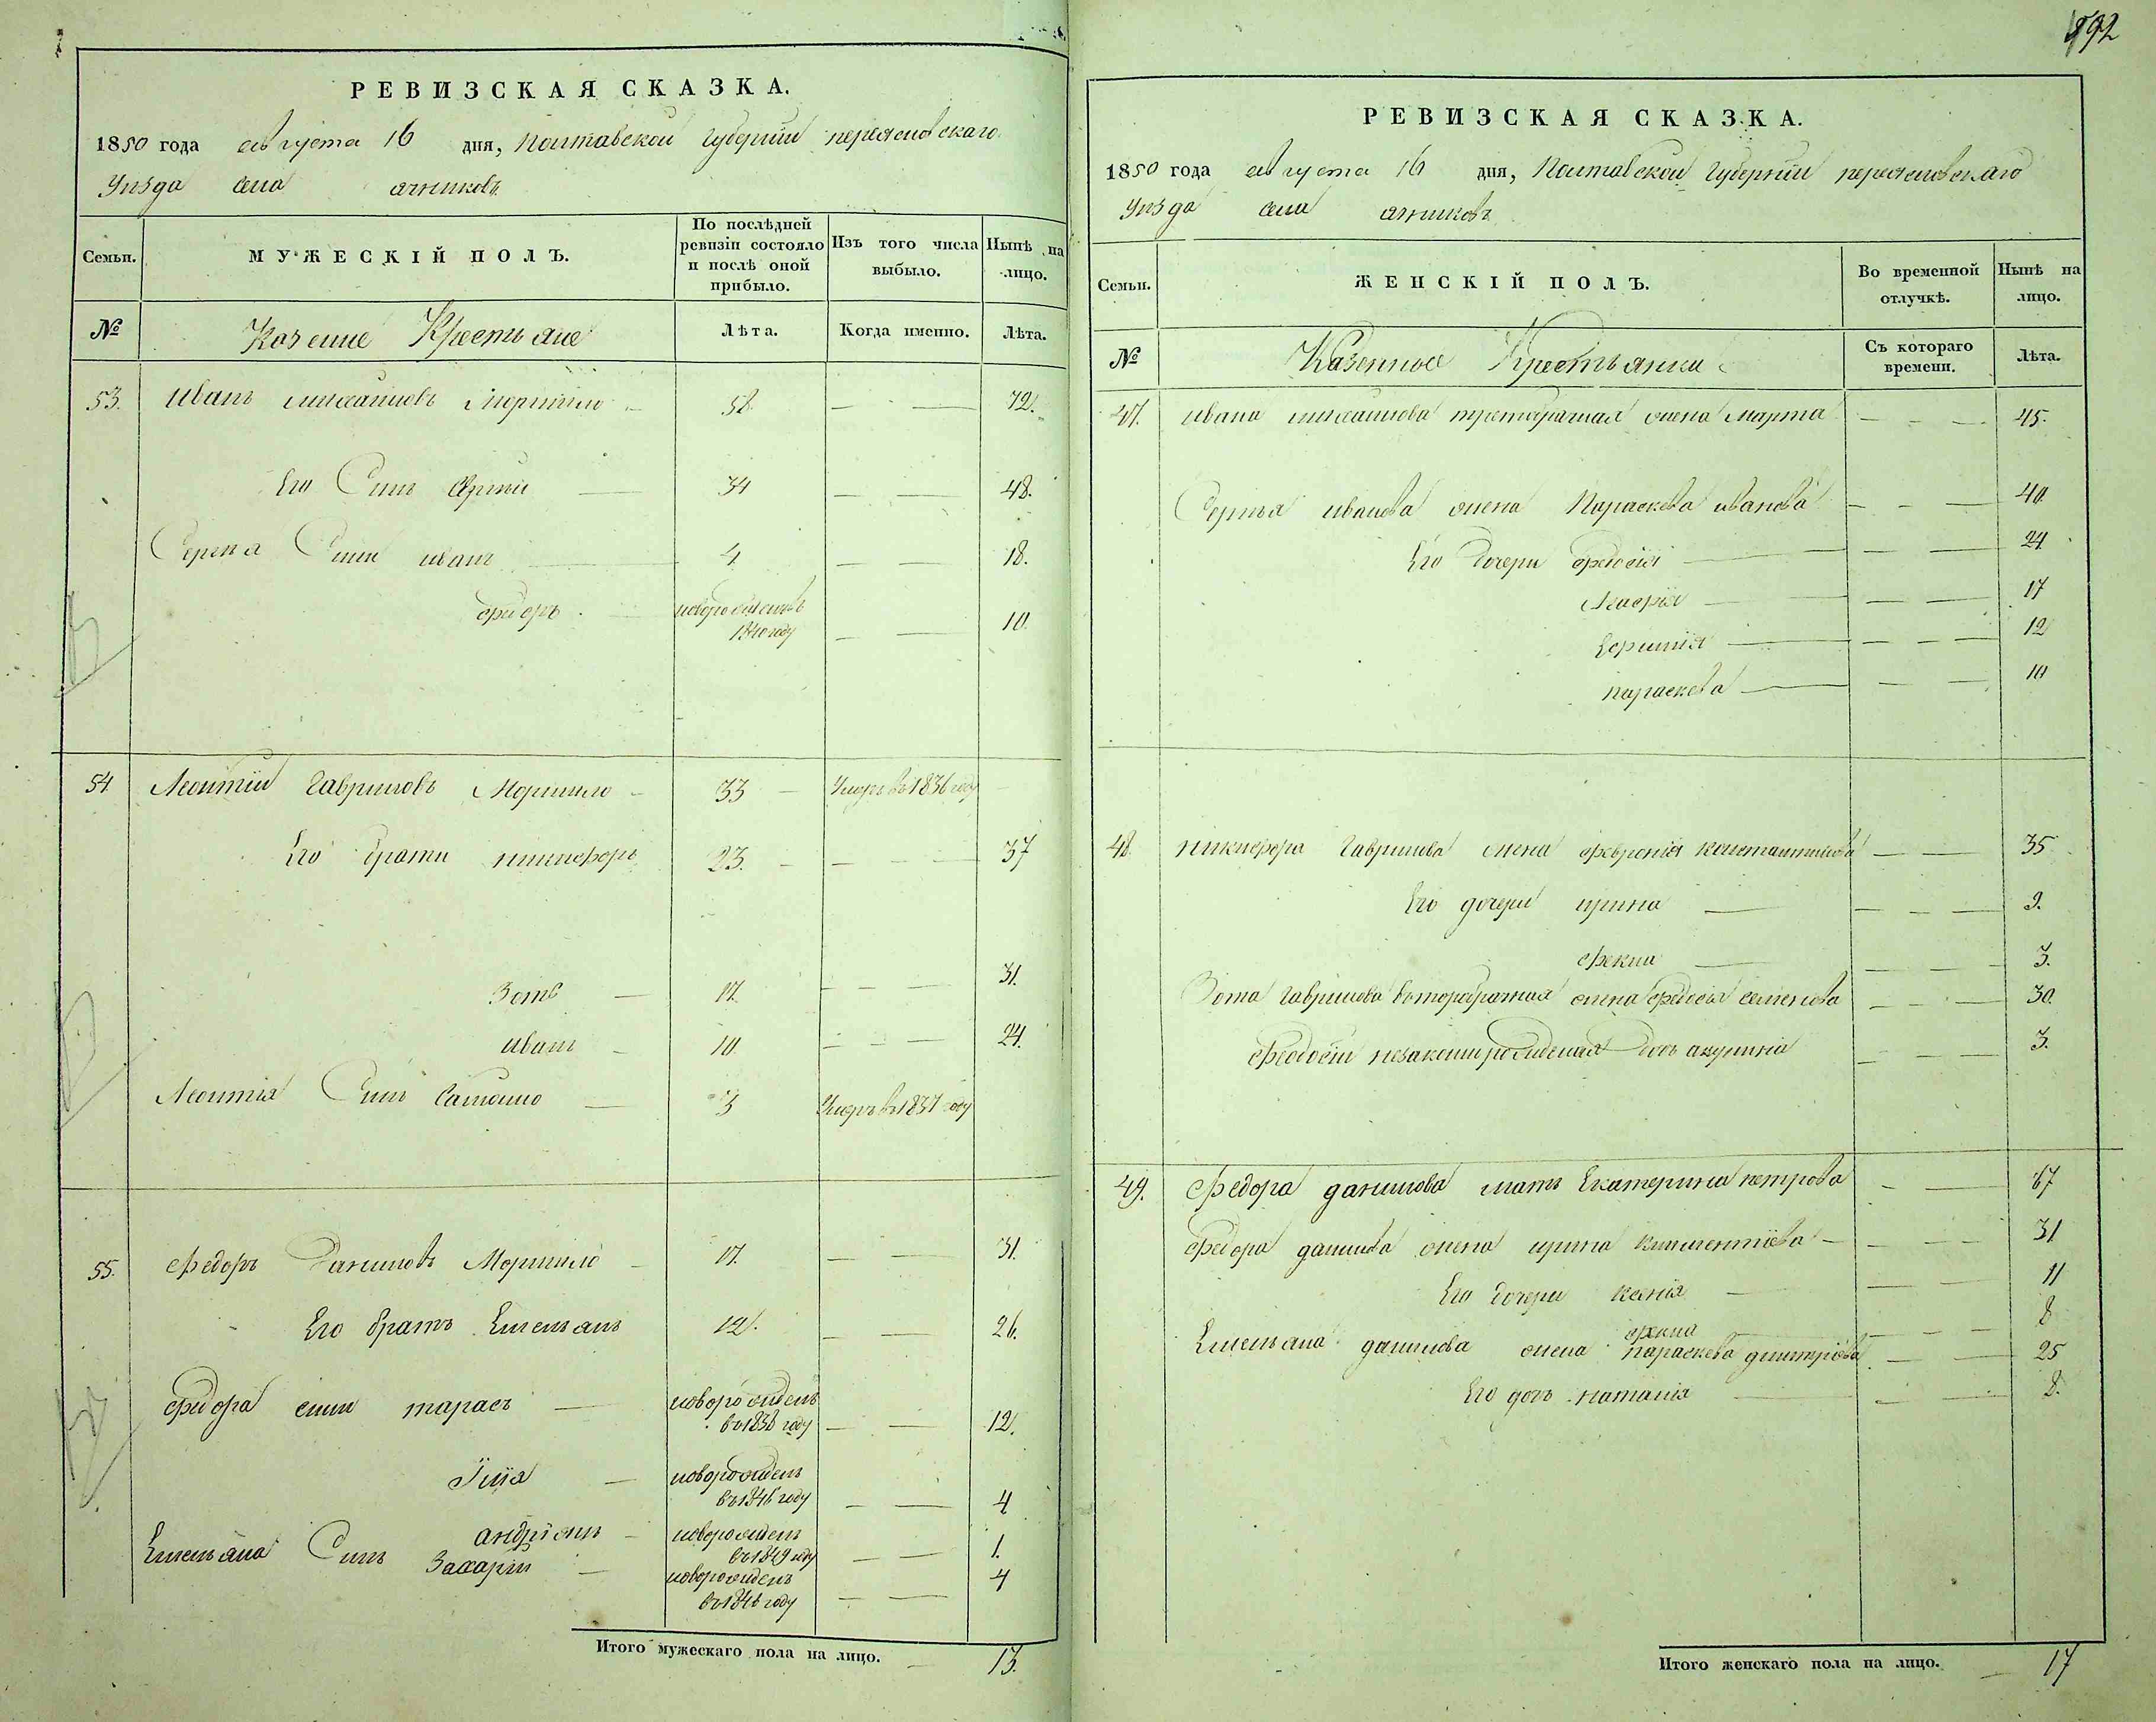 892
РЕВИЗСКАЯ СКАЗКА.
1850 года августа 16 дня, Полтавской Губернии переяславскаго
Уезда села
МУЖЕСКІЙ ПОЛЪ.
Семьи.
По послѣдней ревизіи состояло и послѣ оной прибыло.
Изъ того числа выбыло.
Нынѣ на лицо.
№
Казенные Крестьяне
Лѣта.
Когда именно.
Лѣта.
53. иванъ михаиловъ Моргило 58 — — 72.
Его Синъ Сергии — 34 — — 48.
Сергѣя Сини иванъ — 4 — — 18.
федоръ — новорожденъ 1840 году — — 10.
54. Леонтіи Гавриловъ Моргило 33 — Умеръ въ 1836 году
Его брати никифоръ 23. — — — 37
Зотъ — 17. — — — 31.
иванъ — 10 — — — 24.
Леонтія Синъ Самоило — 3 Умеръ въ 1837 году
55. федоръ Даниловъ Моргило 17. — — 31.
Его братъ Емельянъ 12. — — 26.
федора сини тарасъ — новорожденъ въ 1838 году — — 12.
Їлїя — новорожденъ въ 1846 году — — 4
андріянъ — новорожденъ въ 1849 году — — 1.
Емельяна Синъ Захарїи — новорожденъ въ 1846 году — — 4
Итого мужескаго пола на лицо. — 13.
РЕВИЗСКАЯ СКАЗКА.
1850 года августа 16 дня, Полтавской Губернии переяславскаго
Уезда села
Семьи.
ЖЕНСКІЙ ПОЛЪ.
Во временной отлучкѣ.
Нынѣ на лицо.
№
Казенные Крестьянки
Съ котораго времени.
Лѣта.
47. ивана михаилова третебрачная жена марта — — — 45.
Сергѣя иванова жена Параскева иванова — — — 40
Его дочери федосія — — — 24
— — — 17
— — — — 12
параскева — — — 10
48 никифора Гаврилова жена февронія константинова — — 35
Его дочери ирина — — — — 9.
фекла — — — — 3.
Зота Гаврилова второбрачная жена федосія семенова — — — 30.
феодосіи незаконнорожденая дочь акулина — — — 3.
49. федора данилова мать Екатерина петрова — — 67
федора данилова жена ирина климентіева — — — — 31
Его дочери ксенія — — — 11
фекла — — — 8
Емельяна данилова жена параскева дмитріева — — 25
Его дочь наталія — — — 8.
Итого женскаго пола на лицо. — 17